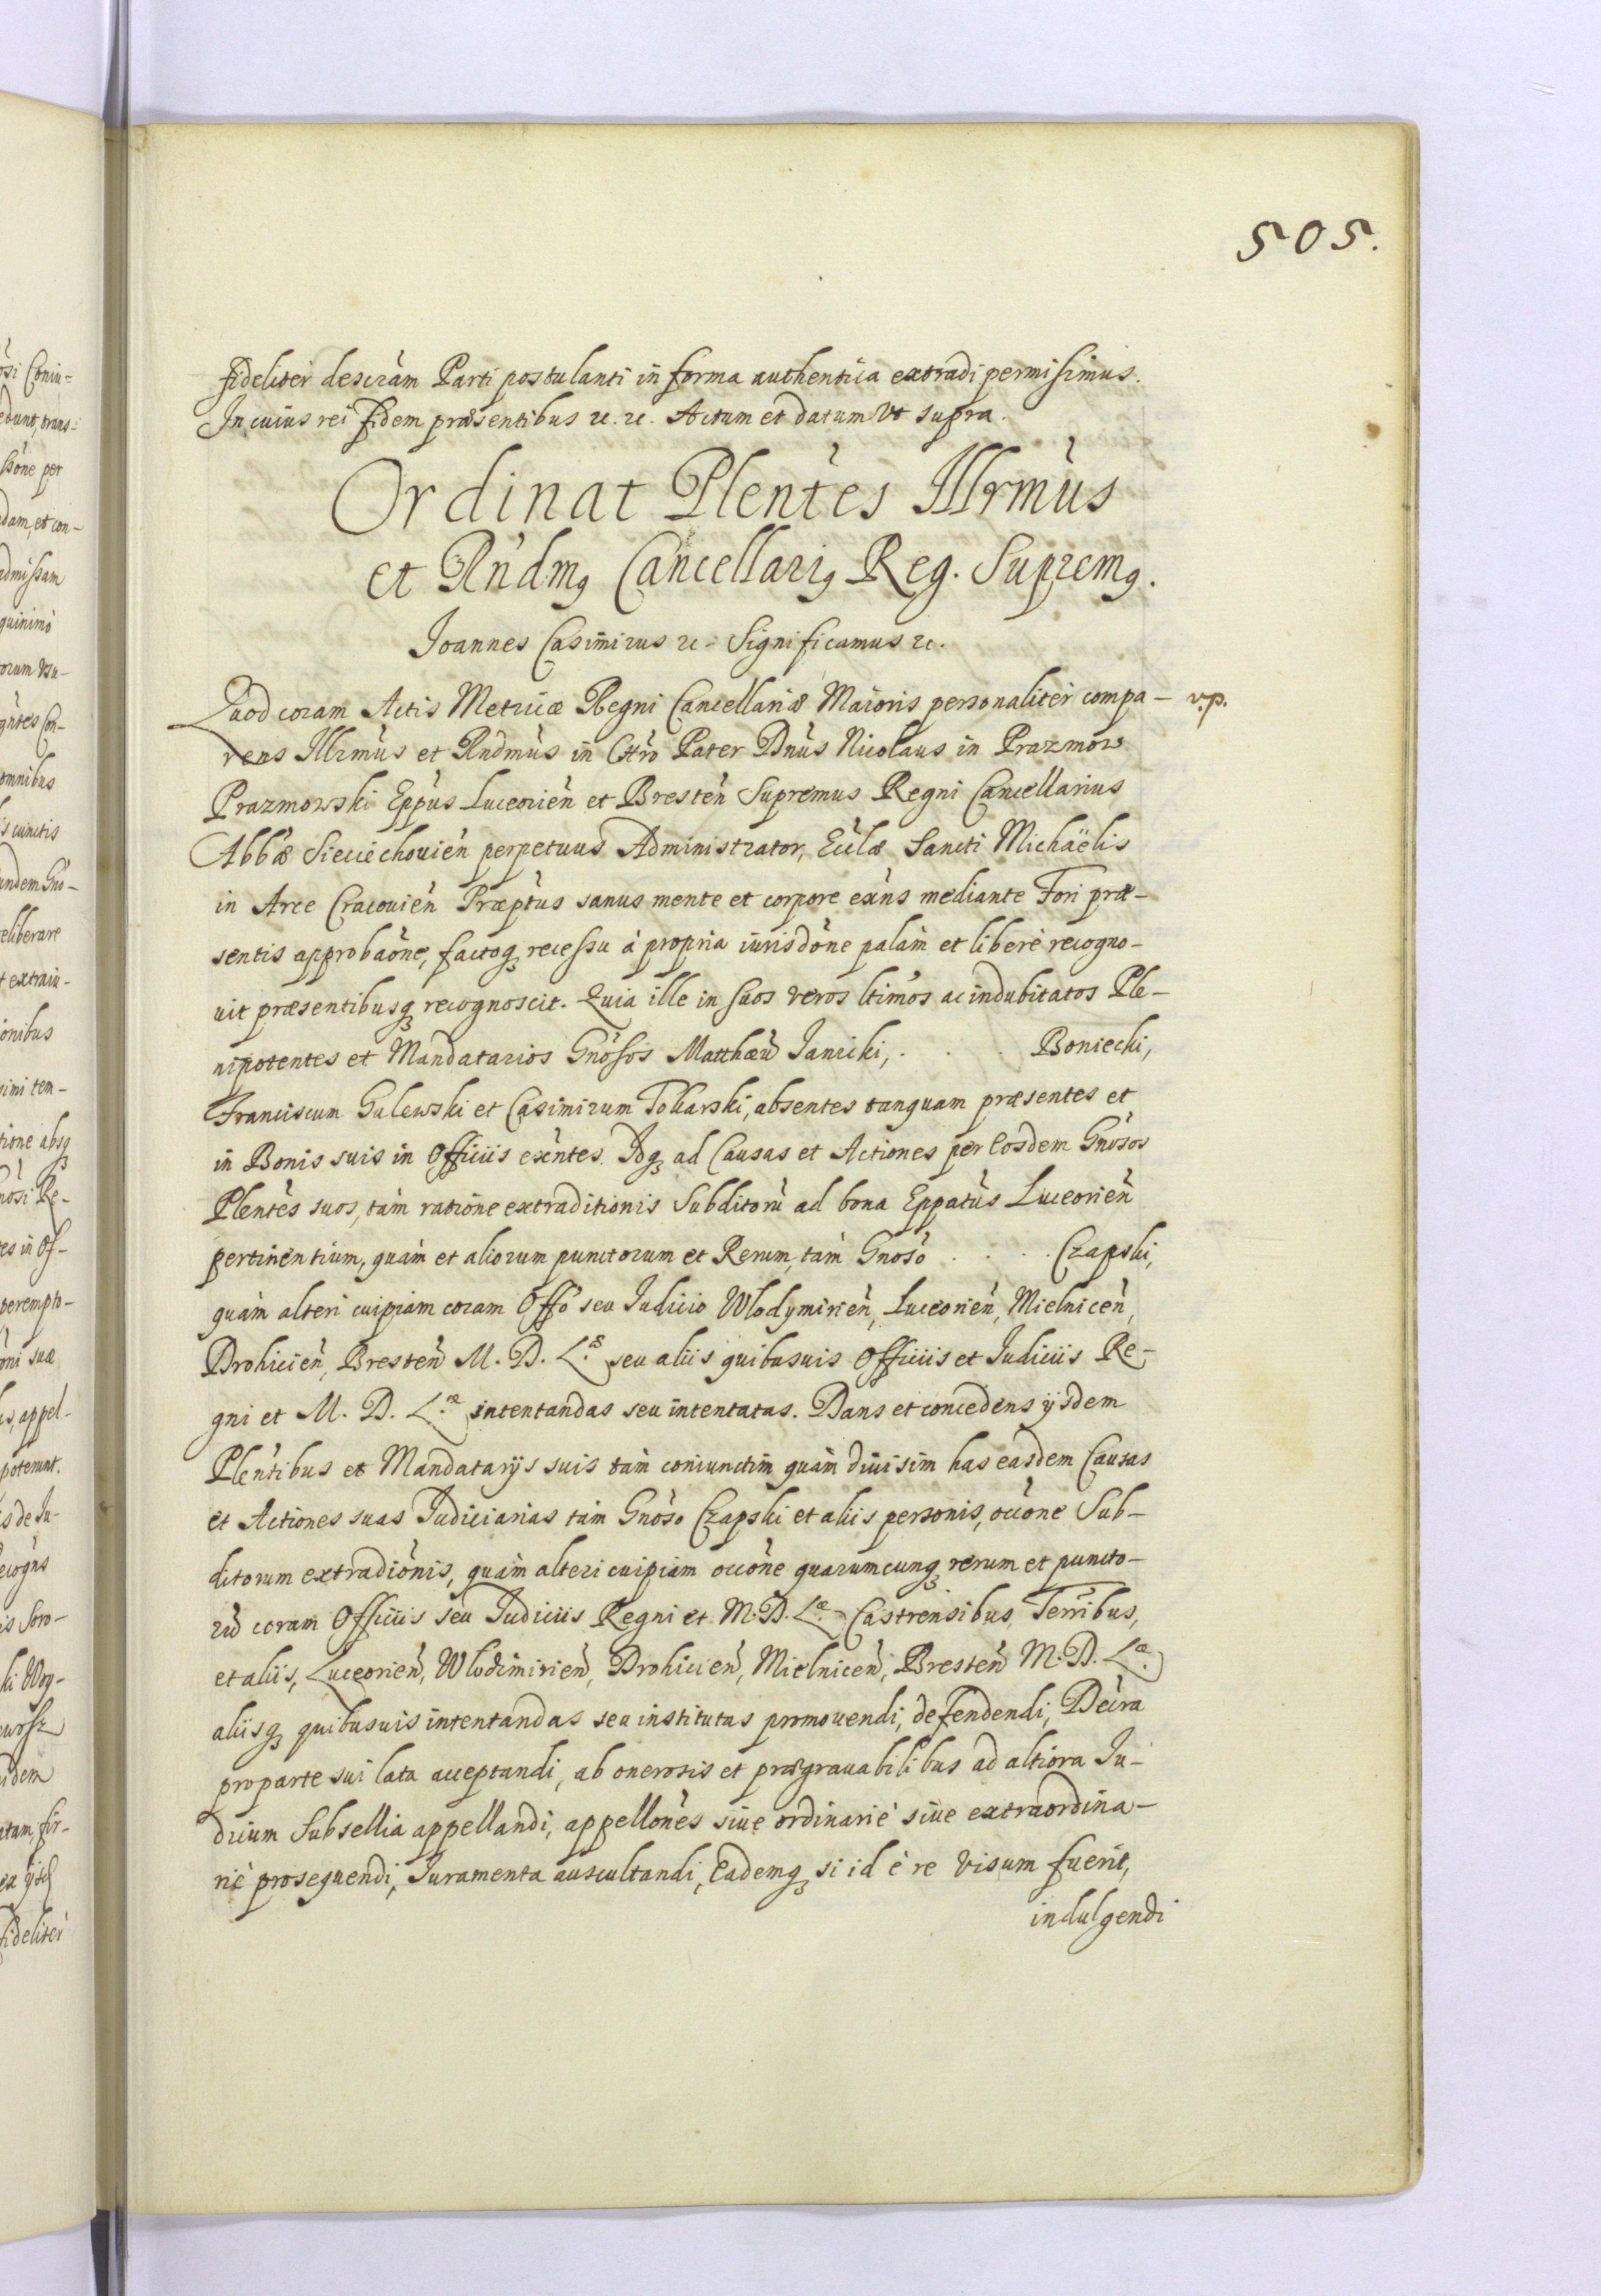 505.
fideliter descràm Parti postulanti in forma authentica extradi permisimus.
In cuius rei fidem præsentibus rc. rc. Actum et datum Vt supra.
Ordinat Plentès Illrmùs
et Rńdmꝯ Cancellariꝯ Reg. Supremꝯ.
Joannes Casimirus rc. Significamus rc.
Quod coram Actis Metricæ Regni Cancellariæ Maioris personaliter compa– v.p.
rens Illrmùs et Rndmùs in Chrò Pater Dnùs Nicolaus in Prazmow
Prazmowski Eppùs Luceorien̄ et Bresten̄ Supremus Regni Cancellarius
Abbæ Sieciechouien̄ perpetuus Administrator, Ecclæ Sancti Michaëlis
in Arce Cracouien̄ Præptùs sanus mente et corpore exn̄s mediante Fori præ–
sentis approbaòne, factoqꝫ recessu à propria iurisdòne palàm et liberè recogno–
uit præsentibusqꝫ recognoscit. Quia ille in suos veros ltimòs ac indubitatos Ple–
nipotentes et Mandatarios Gnòsos Matthæū Janicki, . . . Boniecki,
Franciscum Gulewski et Casimirum Tokarski, absentes tanquam præsentes et
in Bonis suis in Officiis exn̄tes. Idqꝫ ad Causas et Actiones per Eosdem Gnòsos
Plentès suos, tàm ratione extraditionis Subditorū ad bona Eppatùs Luceorien̄
pertinentium, quàm et aliorum punctorum et Rerum, tàm Gnosò . . . . Czapski,
quàm alteri cuipiam coram Offò seu Judicio Wlodymirien̄, Luceorien̄, Mielnicen̄,
Drohicien̄, Bresten̄ M. D. L.æ seu aliis quibusuis Officiis et Judiciis Re–
gni et M. D. L.æ intentandas seu intentatas. Dans et concedens ijsdem
Plentìbus et Mandatarijs suis tàm coniunctim quàm diuisim has easdem Causas
et Actiones suas Judiciarias tàm Gnòso Czapski et aliis personis, occòne Sub–
ditorum extradiònis, quàm alteri cuipiam occòne quarumcunqꝫ rerum et puncto–
rū coram Officiis seu Judiciis Regni et M. D. L.æ Castrensibus, Terribus,
et aliis, Luceorien̄, Wlodimirien̄, Drohicien̄, Mielnicen̄, Bresten̄ M. D. L.æ
aliisqꝫ quibusuis intentandas seu institutas promouendi, defendendi, Decra
pro parte sui lata acceptandi, ab onerosis et prægrauabilibus ad altiora Iu–
dicium Subsellia appellandi, appellònes siue ordinariè siue extraordina–
riè prosequendi, Iuramenta auscultandi, Eademqꝫ si id è re visum fuerit,
indulgendi